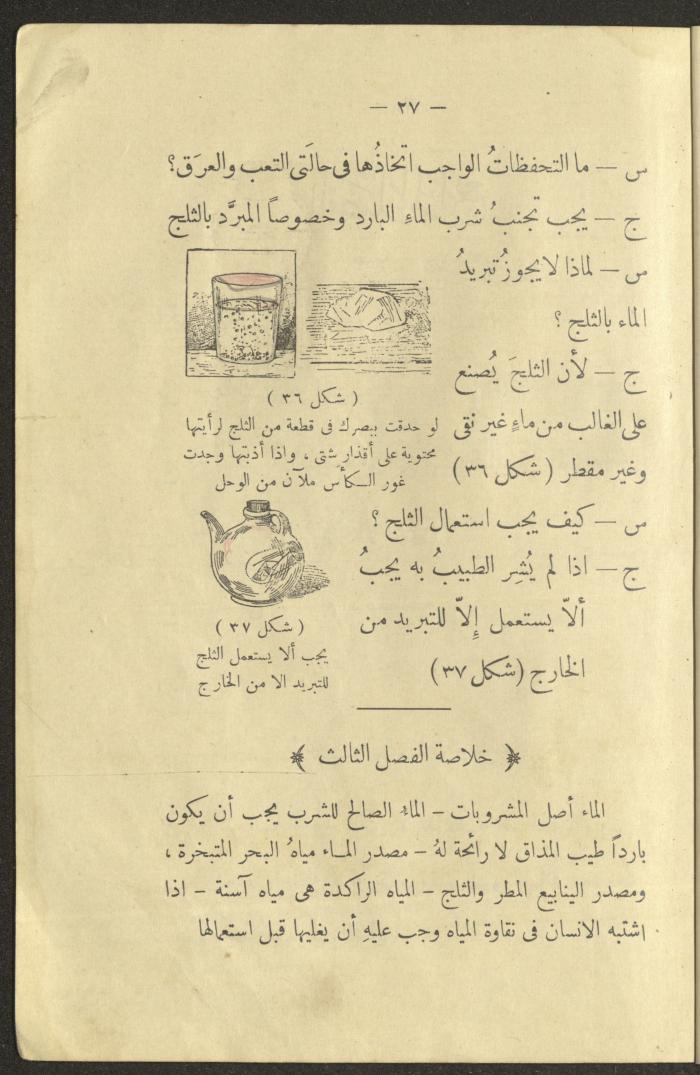 — ٢٧ —
س — ما التحفظاتُ الواجب اتخاذُها فى حالَتى التعب والعرَق؟
ج — يجب تجنبُ شرب الماءِ البارد وخصوصاً المبرَّد بالثلج
س — لماذا لا يجوزُ تبريدُ
الماء بالثلج ؟
ج — لأن الثلجَ يُصنع
على الغالب من ماءٍ غير نقى
وغير مقطر (شكل ٣٦)
( شكل ٣٦ )
لو حدقت ببصرك فى قطعة من الثلج لرأيتها
محتوية على أقذار شتى ، واذا أذبتها وجدت
غور الكأس ملآن من الوحل
س — كيف يجب استعمال الثلج ؟
ج — اذا لم يُشِر الطبيبُ به يجبُ
ألاّ يستعمل إِلاّ للتبريد من
الخارج (شكل ٣٧)
( شكل ٣٧ )
يجب ألا يستعمل الثلج
للتبريد الا من الخارج
﴿ خلاصة الفصل الثالث ﴾
الماء أصل المشروبات – الماءُ الصالح للشرب يجب أن يكون
بارداً طيب المذاق لا رائحة لهُ – مصدر المـاء مياهُ البحر المتبخرة ،
ومصدر الينابيع المطر والثلج – المياه الراكدة هى مياه آسنة – اذا
اشتبه الانسان فى نقاوة المياه وجب عليهِ أن يغليها قبل استعمالها